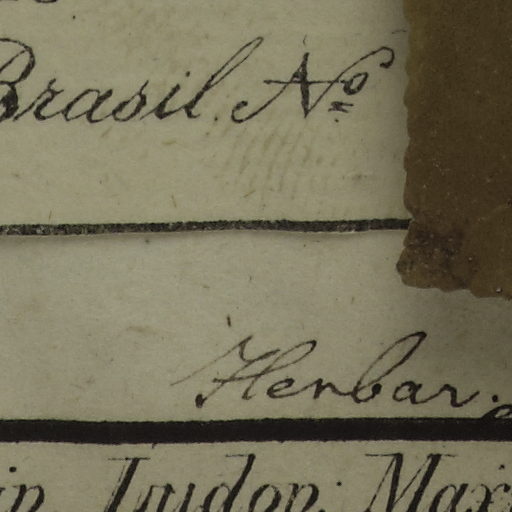 Brasil. No
Herbar.
Ludov. Max